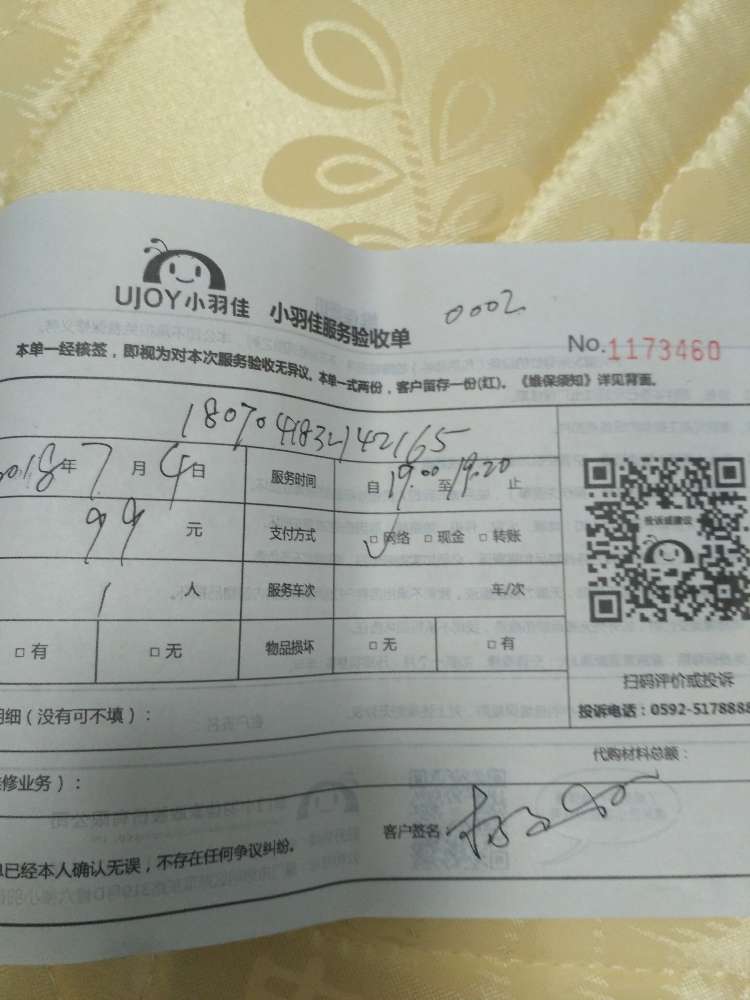 UJOY小羽佳 小羽佳服务验收单 0002
No.1173460
本单一经核签，即视为对本次服务验收无异议。本单一式两份，客户留存一份(红)。《维保须知》详见背面。
1807041832142165
2018年7月4日 服务时间 自19:00至19:20止
99元 支付方式 □网络 □现金 □转账
1人 服务车次 车/次
□有 □无 物品损坏 □无 □有
投诉或建议
扫码评价或投诉
明细（没有可不填）：
投诉电话：0592-5178888
代购材料总额：
修业务）：
客户签名：
已经本人确认无误，不存在任何争议纠纷。